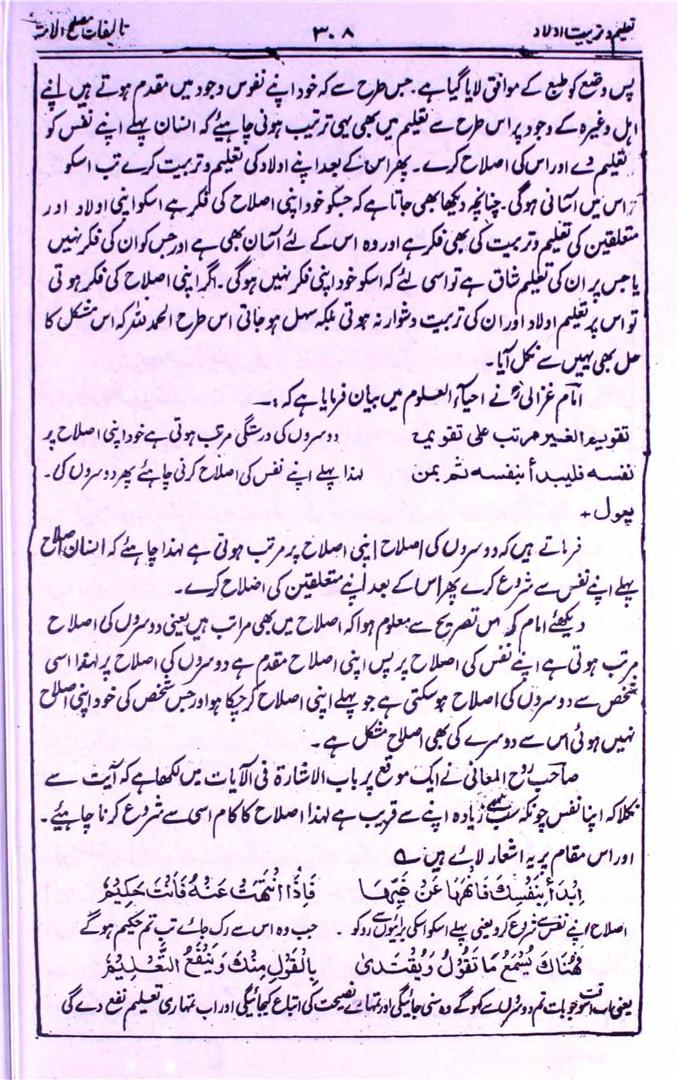 تعلیم و تربیت اولاد ۳۰۸ تالیفات مصلح الامت
پس وضع کو طبع کے موافق لایا گیا ہے۔ جس طرح سے کہ خود اپنے نفوس وجود میں مقدم ہوتے ہیں اپنے
اہل وغیرہ کے وجود پر اس طرح سے تعلیم میں بھی یہی ترتیب ہونی چاہیئے کہ انسان پہلے اپنے نفس کو
تعلیم دے اور اس کی اصلاح کرے۔ پھر اس کے بعد اپنے اولاد کی تعلیم و تربیت کرے تب اسکو
اس میں آسانی ہوگی۔ چنانچہ دیکھا بھی جاتا ہے کہ جسکو خود اپنی اصلاح کی فکر ہے اسکو اپنی اولاد اور
متعلقین کی تعلیم و تربیت کی بھی فکر ہے اور وہ اس کے لئے آسان بھی ہے اور جس کو ان کی فکر نہیں
یا جس پر ان کی تعلیم شاق ہے تو اسی لئے کہ اسکو خود اپنی فکر نہیں ہوگی۔ اگر اپنی اصلاح کی فکر ہوتی
تو اس پر تعلیم اولاد اور ان کی تربیت دشوار نہ ہوتی بلکہ سہل ہو جاتی اس طرح الحمد للہ کہ اس مشکل کا
حل بھی یہیں سے نکل آیا۔
امام غزالیؒ نے احیاء العلوم میں بیان فرمایا ہے کہ :۔
تقویم الغیر مرتب علی تقویم دوسروں کی درستگی مرتب ہوتی ہے خود اپنی اصلاح پر
نفسه فلیبدأ بنفسه ثم بمن لہذا پہلے اپنے نفس کی اصلاح کرنی چاہئے پھر دوسروں کی۔
یعول +
فرماتے ہیں کہ دوسروں کی اصلاح اپنی اصلاح پر مرتب ہوتی ہے لہذا چاہئے کہ انسان اصلاح
پہلے اپنے نفس سے شروع کرے پھر اس کے بعد اپنے متعلقین کی اصلاح کرے۔
دیکھئے امام کی اس تصریح سے معلوم ہوا کہ اصلاح میں بھی مراتب ہیں یعنی دوسروں کی اصلاح
مرتب ہوتی ہے اپنے نفس کی اصلاح پر پس اپنی اصلاح مقدم ہے دوسروں کی اصلاح پر لہذا اسی
شخص سے دوسروں کی اصلاح ہوسکتی ہے جو پہلے اپنی اصلاح کرچکا ہو اور جس شخص کی خود اپنی اصلاح
نہیں ہوئی اس سے دوسرے کی بھی اصلاح مشکل ہے۔
صاحب روح المعانی نے ایک موقع پر باب الاشارة فی الآیات میں لکھا ہے کہ آیت سے
نکلا کہ اپنا نفس چونکہ سب سے زیادہ اپنے سے قریب ہے لہذا اصلاح کا کام اسی سے شروع کرنا چاہیئے۔
اور اس مقام پر یہ اشعار لائے ہیں ؎
اِبْدَأْ بِنَفْسِكَ فَانْهَهَا عَنْ غَيِّهَا فَاِذَا انْتَهَتْ عَنْهُ فَاَنْتَ حَكِيْمٌ
اصلاح اپنے نفس سے شروع کرو یعنی پہلے اسکو اسکی برائیوں سے روکو۔ جب وہ اس سے رک جائے تب تم حکیم ہوگے
فَهُنَاكَ يُسْمَعُ مَا تَقُوْلُ وَيُقْتَدٰى بِالْقَوْلِ مِنْكَ وَيَنْفَعُ التَّعْلِيْمُ
یعنی اب اسوقت جو بات تم دوسروں سے کہو گے وہ سنی جائیگی اور تمہاری نصیحت کی اتباع کیجائیگی اور اب تمہاری تعلیم نفع دے گی